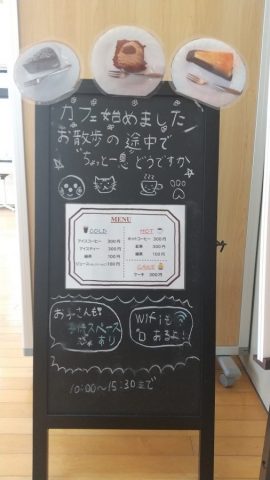 カフェ始めました
お散歩の途中で
"ちょっと一息"どうですか
MENU
COLD
アイスコーヒー 300円
アイスティー 300円
緑茶 100円
HOT
ホットコーヒー 300円
紅茶 300円
緑茶 100円
CAKE
ケーキ 300円
お子さんも
スペース
あり
Wifiも
あるよ！
10:00～15:30まで